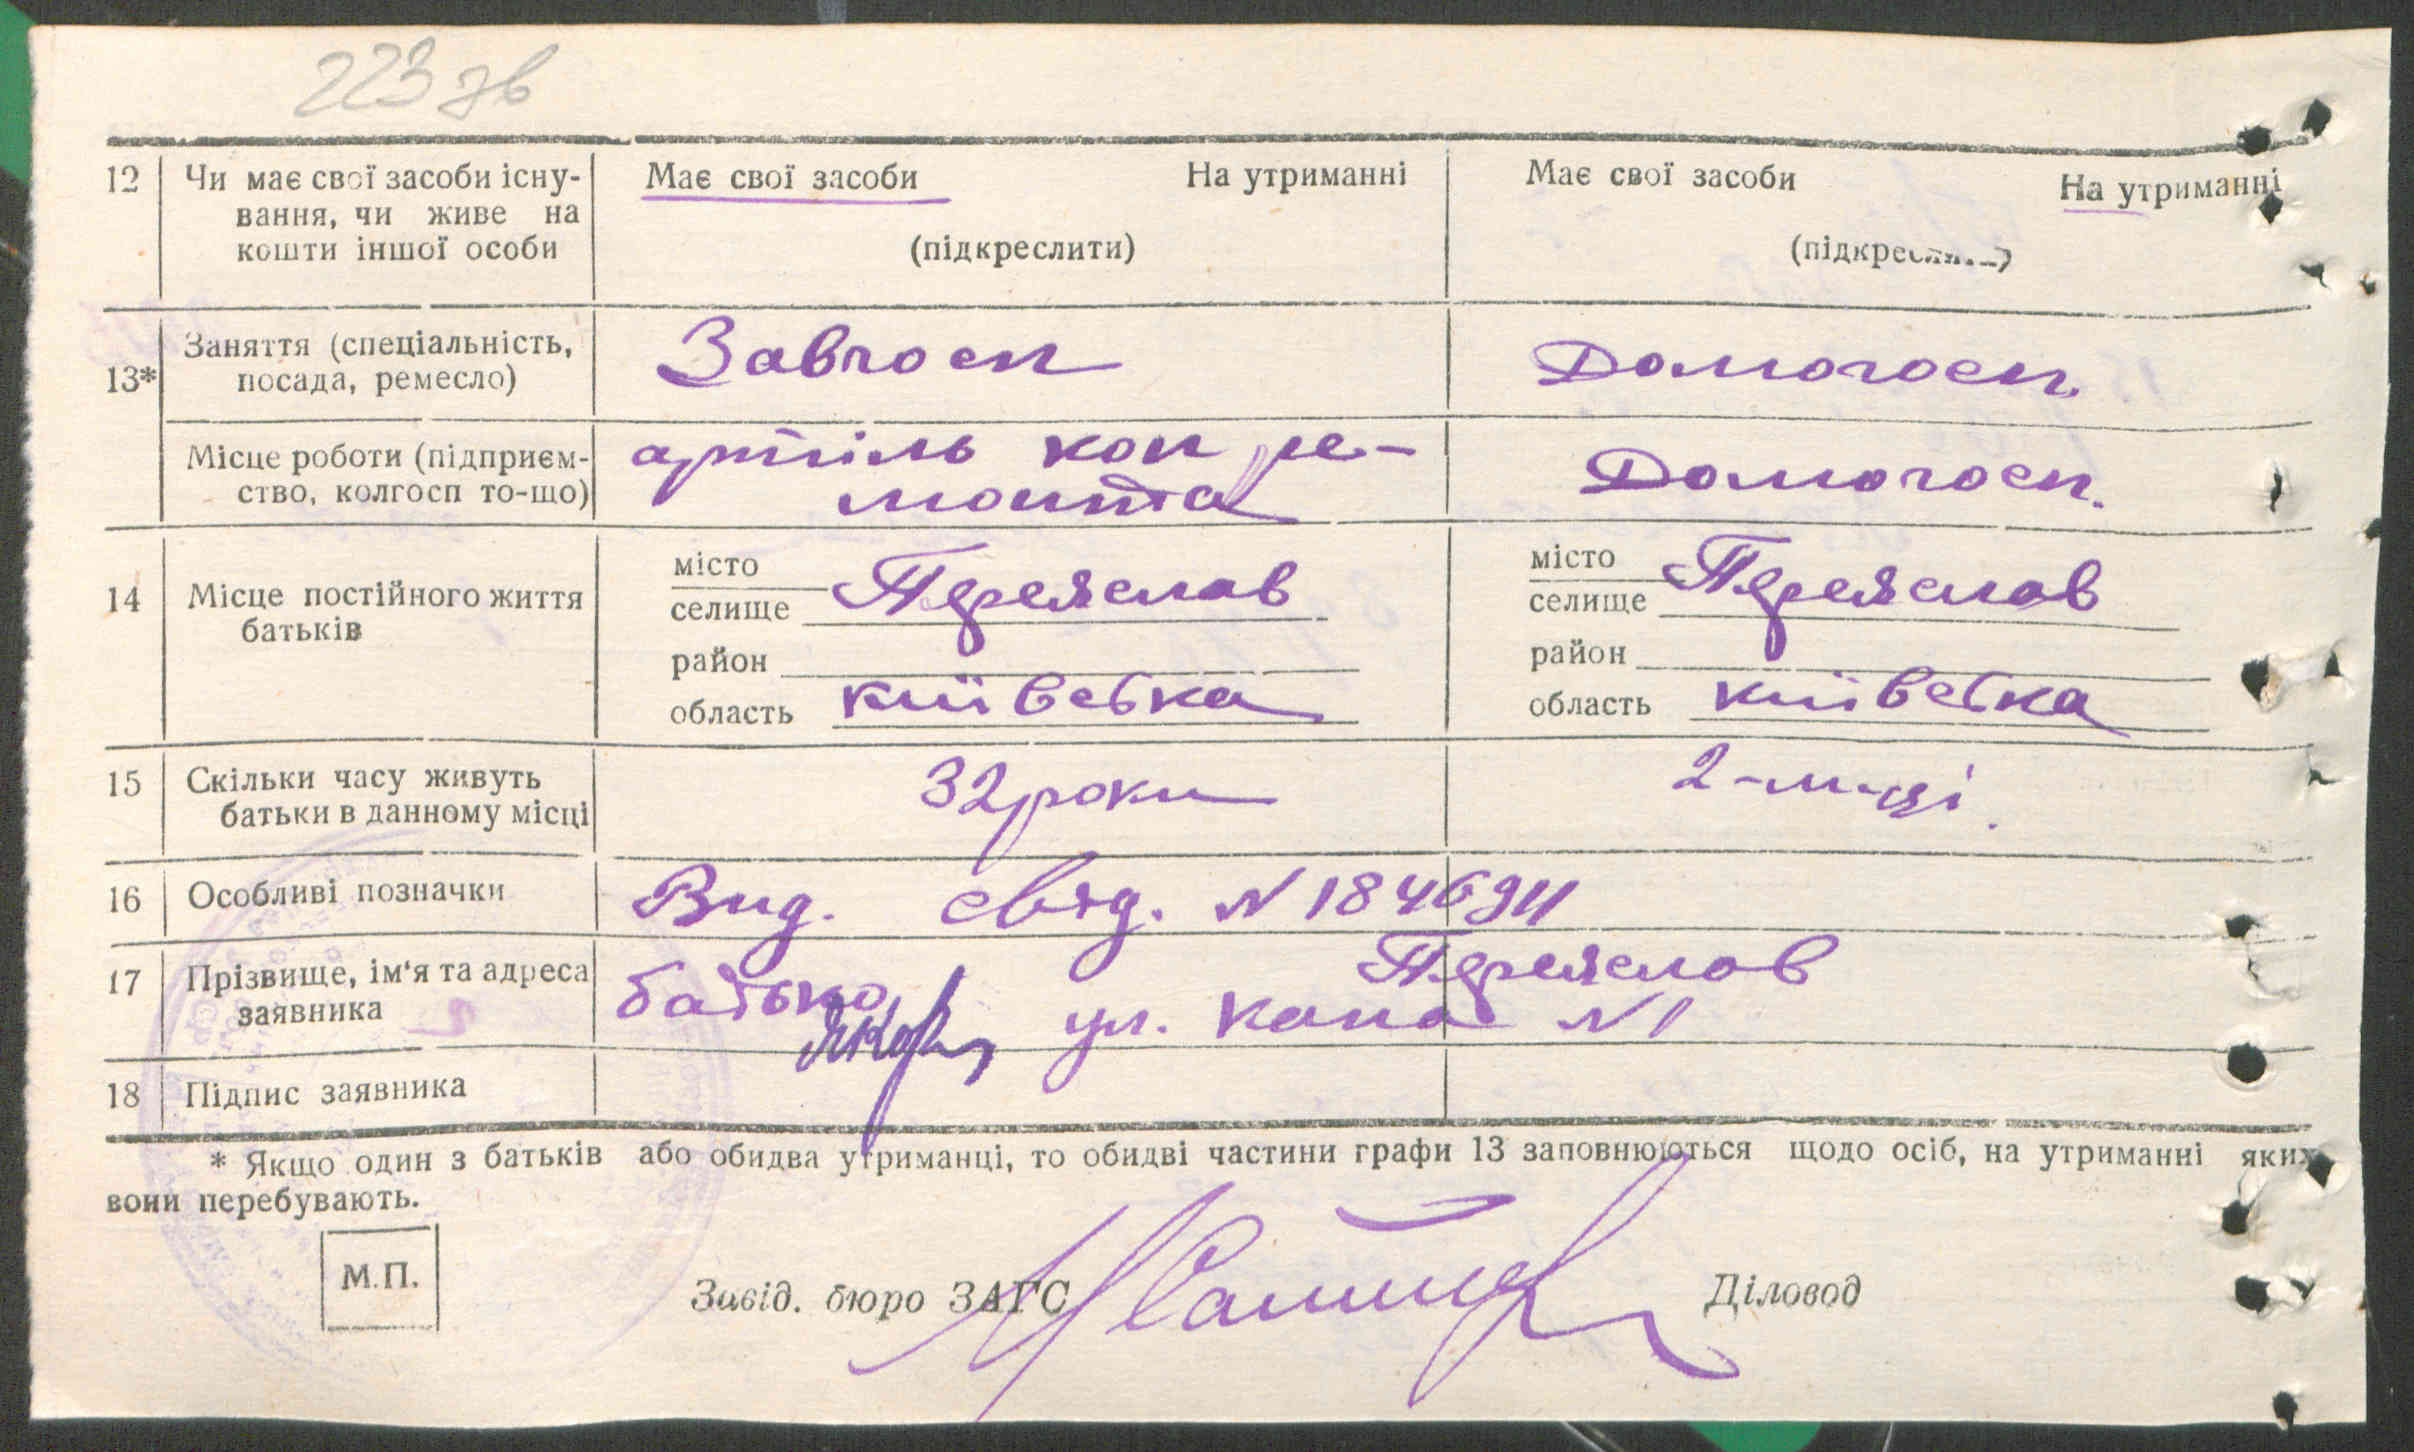 223 зв
12 Чи має свої засоби існу- Має свої засоби На утриманні Має свої засоби На утриманні
вання, чи живе на
кошти іншої особи (підкреслити) (підкреслити)
Заняття (спеціальність, Завгосп Домогосп.
13* посада, ремесло)
Місце роботи (підприєм- артіль коп ре- Домогосп.
ство, колгосп то-що) монта
місто місто
14 Місце постійного життя селище Переяслав селище Переяслав
батьків
район район
область київська область київська
15 Скільки часу живуть 32 роки 2-м-ці.
батьки в данному місці
16 Особливі позначки Вид. свід. N 184694
17 Прізвище, ім'я та адреса батько Переяслав
заявника ул. N 1
18 Підпис заявника
* Якщо один з батьків або обидва утриманці, то обидві частини графи 13 заповнюються щодо осіб, на утриманні яких
вони перебувають.
М.П.
Завід. бюро ЗАГС Діловод